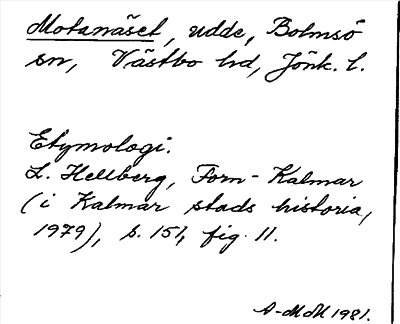 Motanäset, udde, Bolmsö
sn, Västbo hd, Jönk. l.
Etymologi.
L. Hellberg, Forn-Kalmar
(i Kalmar stads historia,
1979), s. 151, fig. 11.
A-MM 1981.